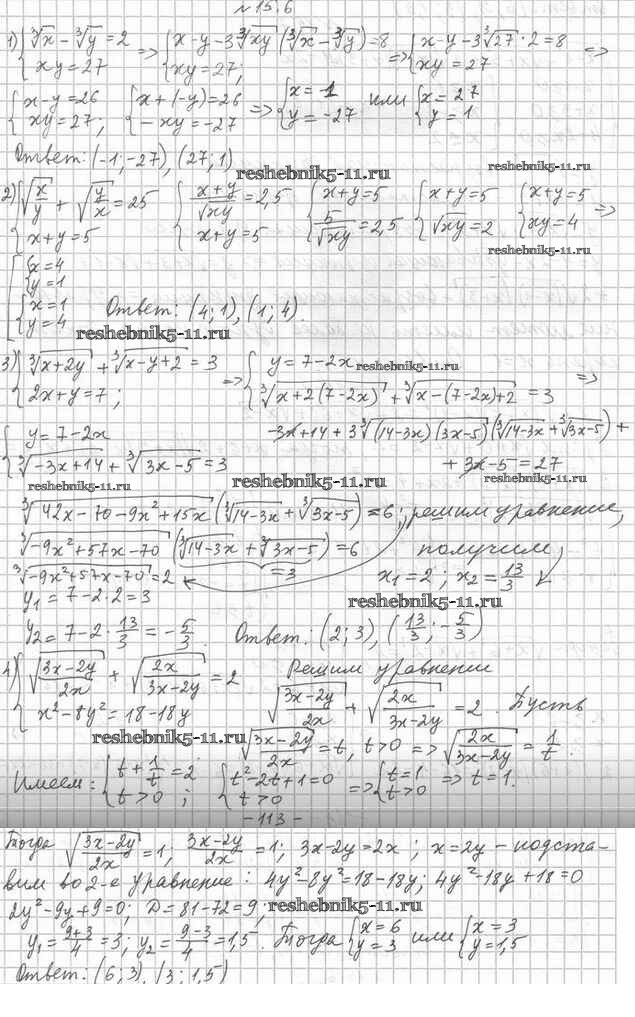 №15.6
1) {∛x - ∛y = 2 => {x-y-3∛xy (∛x - ∛y) = 8 => {x-y-3∛27·2=8 =>
xy=27 {xy=27; {xy=27
{x-y=26 {x+(-y)=26 => {x=-1 или {x=27
{xy=27; {-xy=-27 {y=-27 {y=1
Ответ: (-1;-27), (27;1)
reshebnik5-11.ru
reshebnik5-11.ru
2) {√x/y + √y/x = 25 {x+y/√xy = 2,5 {x+y=5 {x+y=5 {x+y=5 =>
x+y=5 x+y=5 5/√xy=2,5 √xy=2 xy=4
reshebnik5-11.ru
[{x=4
{y=1
{x=1
{y=4 Ответ: (4;1), (1;4).
reshebnik5-11.ru
3) {∛x+2y + ∛x-y+2 = 3 => {y=7-2x =>
reshebnik5-11.ru
2x+y=7; ∛x+2(7-2x) + ∛x-(7-2x)+2 = 3
{y=7-2x -3x+14+3∛(14-3x)(3x-5) (∛14-3x + ∛3x-5) +
{∛-3x+14 + ∛3x-5 = 3 +3x-5=27
reshebnik5-11.ru
reshebnik5-11.ru
reshebnik5-11.ru
∛42x-70-9x²+15x (∛14-3x + ∛3x-5) = 6; решим уравнение,
∛-9x²+57x-70 (∛14-3x + ∛3x-5) = 6 получим
=3
∛-9x²+57x-70 = 2 x₁=2; x₂=13/3
y₁=7-2·2=3
reshebnik5-11.ru
y₂=7-2·13/3=-5/3. Ответ: (2;3), (13/3; -5/3)
4) {√3x-2y/2x + √2x/3x-2y = 2 Решим уравнение
x²-8y²=18-18y √3x-2y/2x + √2x/3x-2y = 2. Пусть
reshebnik5-11.ru
√3x-2y/2x = t, t>0 => √2x/3x-2y = 1/t.
Имеем: {t+1/t=2 {t²-2t+1=0 => {t=1 => t=1.
{t>0; {t>0 {t>0
-113-
Тогда √3x-2y/2x = 1; 3x-2y/2x = 1; 3x-2y=2x; x=2y - подста-
вим во 2-е уравнение: 4y²-8y²=18-18y; 4y²-18y+18=0
2y²-9y+9=0; D=81-72=9;
reshebnik5-11.ru
y₁=9+3/4=3; y₂=9-3/4=1,5. Тогда {x=6 или {x=3
{y=3 {y=1,5
Ответ: (6;3), (3;1,5)